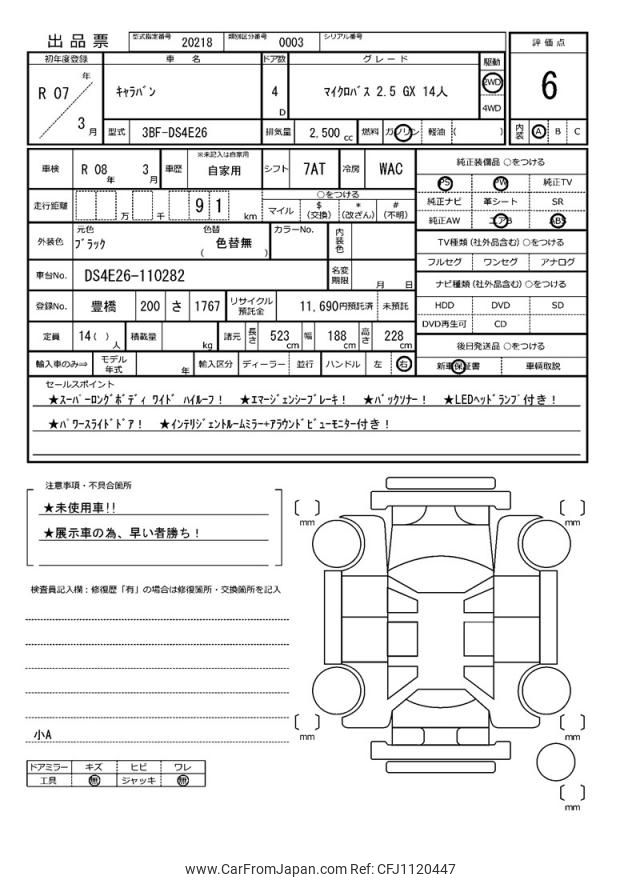 出品票
型式指定番号 20218 類別区分番号 0003 シリアル番号
初年度登録 車名 ドア数 グレード 駆動 評価点
R 07 年 3 月
キャラバン
4 D
マイクロバス 2.5 GX 14人
2WD
4WD
6
型式 3BF-DS4E26 排気量 2,500 cc 燃料 ガソリン 軽油 ( )
内装 A B C
車検 R 08 年 3 月 車歴 ※未記入は自家用 自家用 シフト 7AT 冷房 WAC
走行距離 万 千 9 1 km
○をつける
マイル $(交換) *(改ざん) #(不明)
外装色 元色 ブラック 色替 ( 色替無 ) カラーNo. 内装色
車台No. DS4E26-110282 名変期限 月 日
登録No. 豊橋 200 さ 1767 リサイクル預託金 11,690円預託済 未預託
定員 14( )人 積載量 kg 諸元 長さ 523 cm 幅 188 cm 高さ 228 cm
輸入車のみ⇒ モデル年式 年 輸入区分 ディーラー 並行 ハンドル 左 右
純正装備品 ○をつける
PS PW 純正TV
純正ナビ 革シート SR
純正AW エアB ABS
TV種類 (社外品含む) ○をつける
フルセグ ワンセグ アナログ
ナビ種類 (社外品含む) ○をつける
HDD DVD SD
DVD再生可 CD
後日発送品 ○をつける
新車保証書 車輌取説
セールスポイント
★スーパーロングボディ ワイド ハイルーフ! ★エマージェンシーブレーキ! ★バックソナー! ★LEDヘッドランプ付き!
★パワースライドドア! ★インテリジェントルームミラー+アラウンドビューモニター付き!
注意事項・不具合箇所
★未使用車!!
★展示車の為、早い者勝ち!
検査員記入欄:修復歴「有」の場合は修復箇所・交換箇所を記入
小A
ドアミラー キズ ヒビ ワレ
工具 無 ジャッキ 無
mm
mm
mm
mm
mm
www.CarFromJapan.com Ref: CFJ1120447